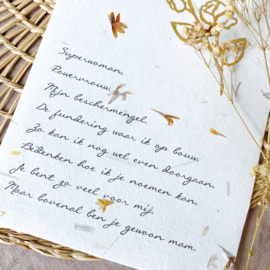 Superwoman.
Powervrouw.
Mijn beschermengel.
De fundering waar ik op bouw.
Zo kan ik nog wel even doorgaan.
Bedenken hoe ik je noemen kan.
Je bent zo veel voor mij.
Maar bovenal ben je gewoon mam.